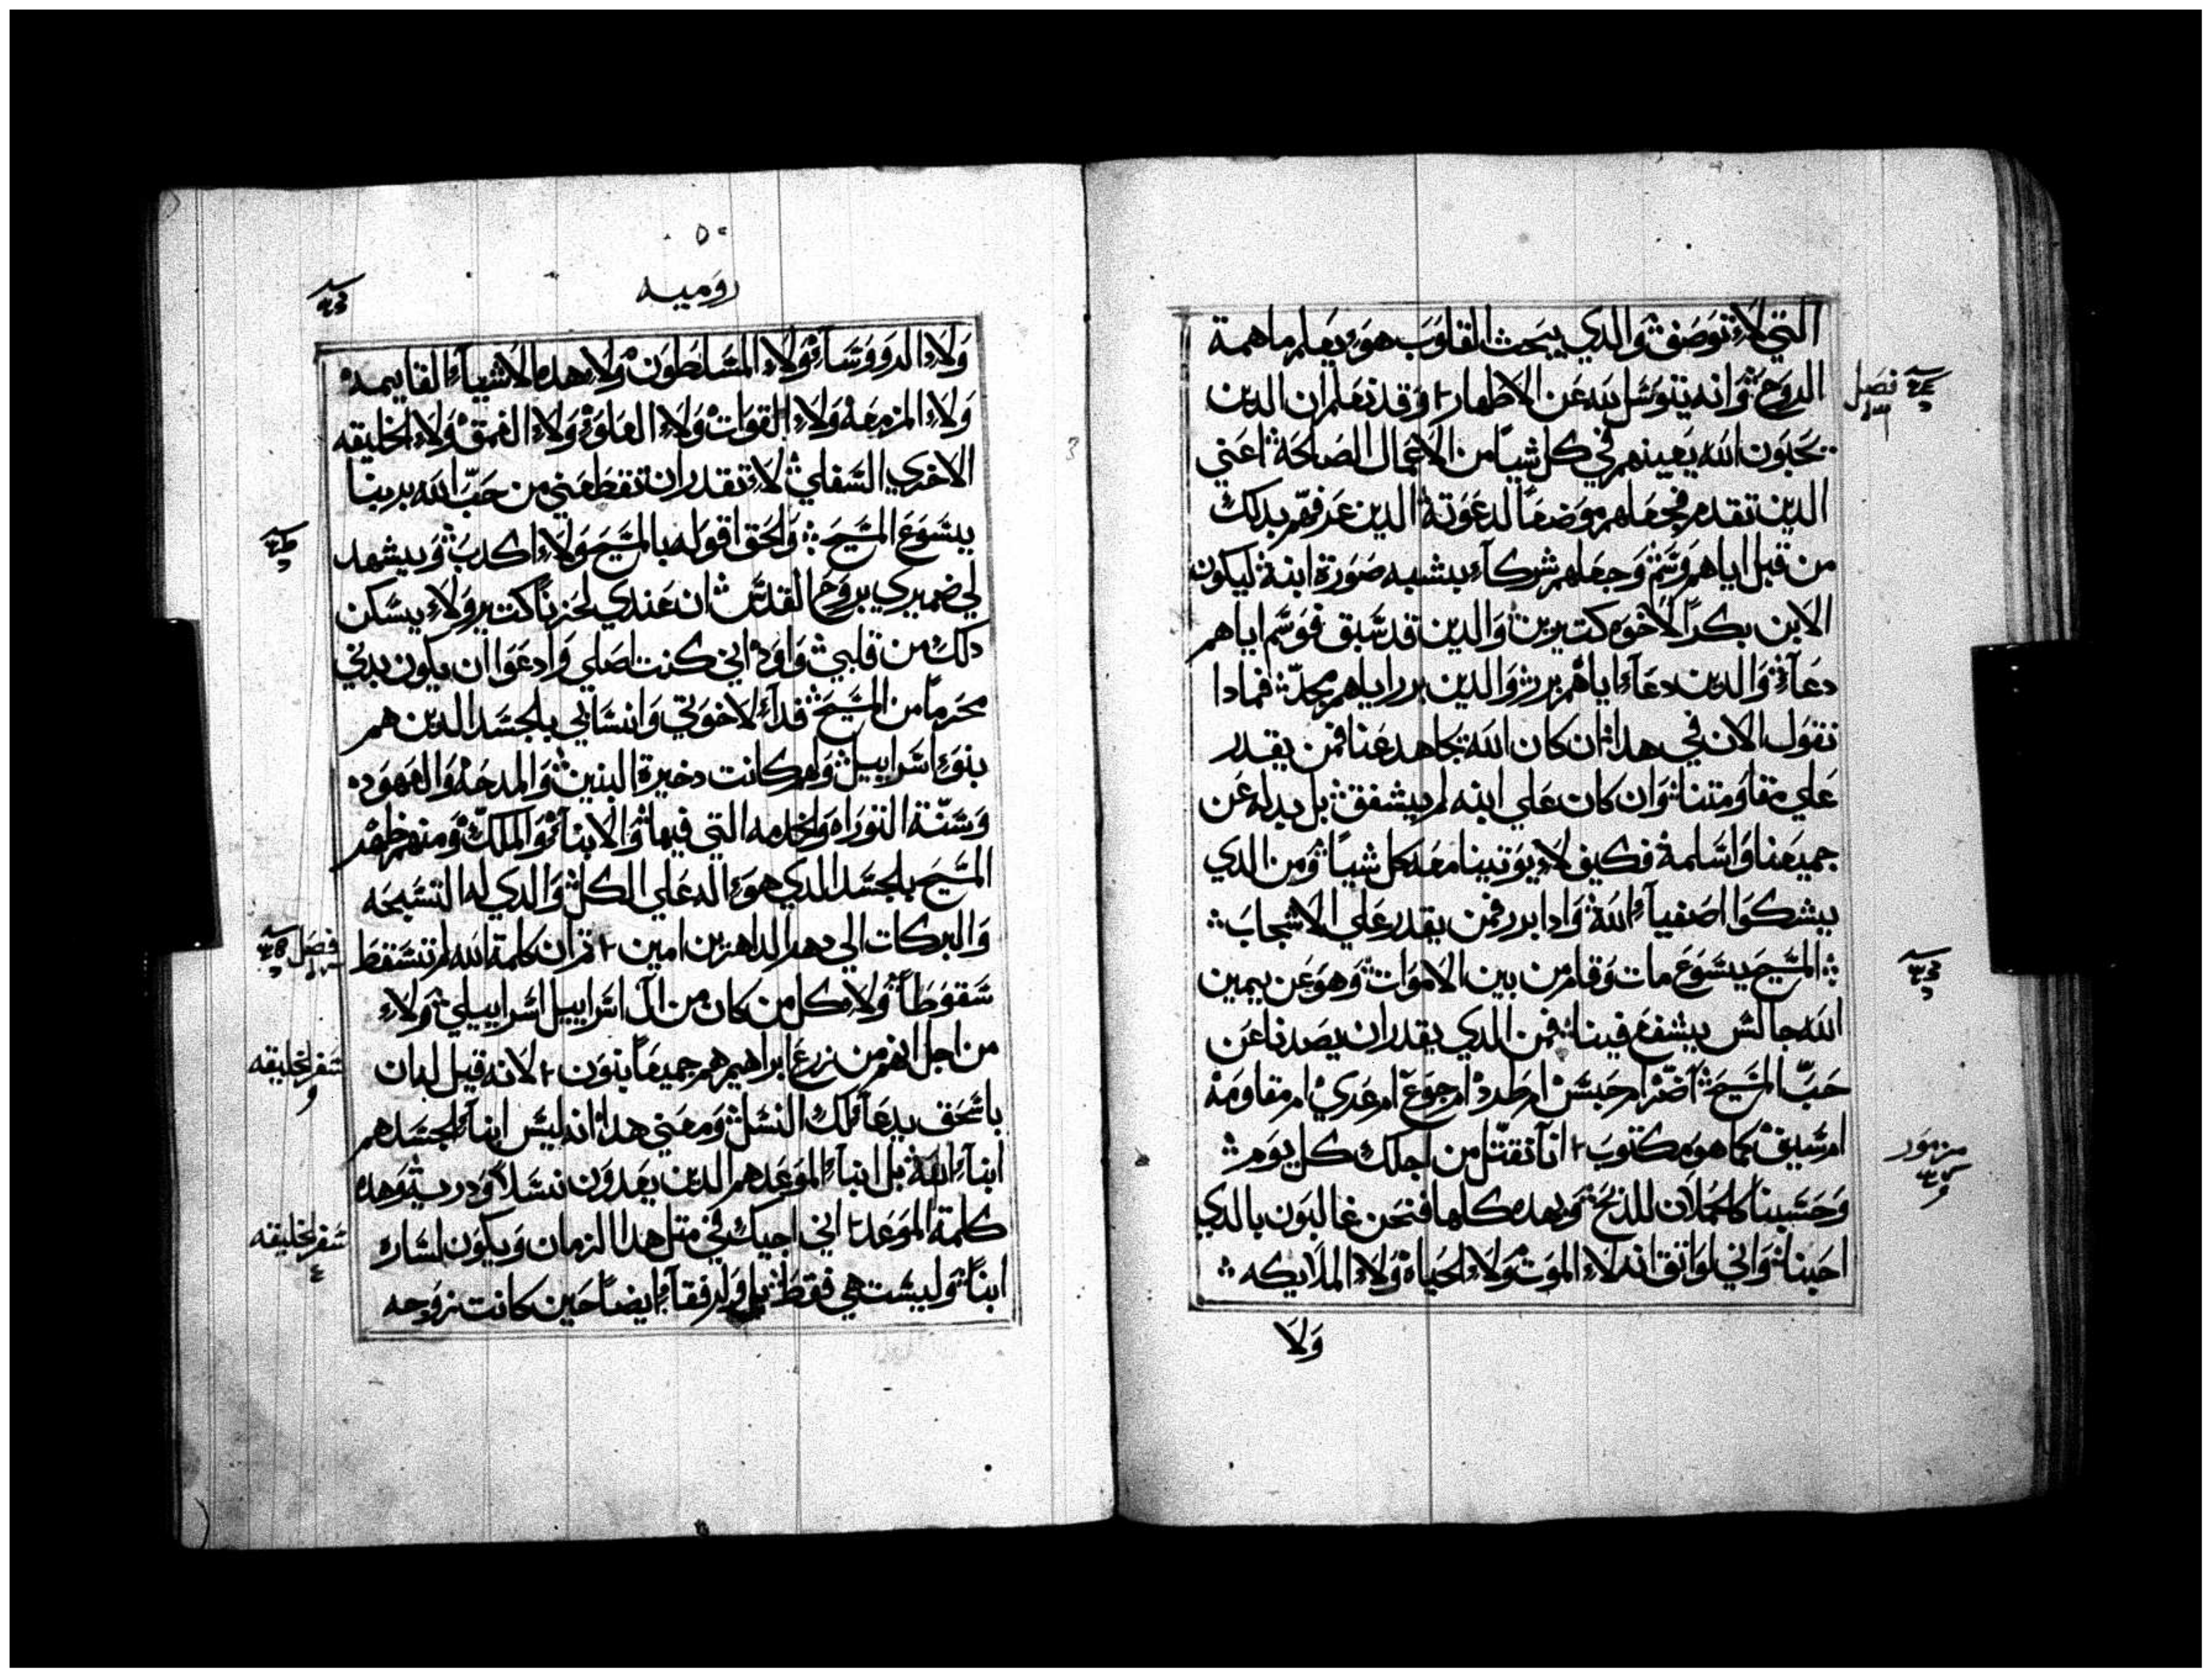 التي لا توصف والدي يبحث القلوب هو يعلم ما همة
الروح وانه يتوسل بيه عن الاطهار وقد نعلم ان الدين
فصل
يحبون الله يعينهم في كل شيا من الاعمال الصالحة اعني
الدين تقدم فجعلهم موضعا لدعوتة الدين عرفهم بدلك
من قبل اياهم وسم وجعلهم شركاء بشبه صورة ابنة ليكون
الابن بكرا لاخوه كتيرين والدين قد سبق فوسم اياهم
دعاء والدين دعاء اياهم برر والدين برر اياهم مجد فمادا
نقول الان في هدا ان كان الله يجاهد عنا فمن يقدر
علي مقاومتنا وان كان علي ابنه لم يشفق بل بدله عن
جميعنا واسلمة فكيف لا يوتينا معه كل شيا ومن الدي
يشكوا اصفياء الله وادا برر فمن يقدر علي الاشجاب
المسيح يسوع مات وقام من بين الاموات وهو عن يمين
الله جالس يشفع فينا فمن الدي يقدر ان يصدنا عن
حب المسيح اضر ام حبس ام طرد ام جوع ام عري ام مقاومه
ام سيف كما هو مكتوب اننا نقتل من اجلك كل يوم
مزمور
وحسبنا كالحملان للدبح وبهده كلها فنحن غالبون بالدي
احبنا واني لواتق انه لا الموت ولا الحياه ولا الملايكه
ولا
٥٠
روميه
ولا الرووسا ولا المسلطون ولا هده الاشياء القايمه
ولا المزمعه ولا القوات ولا العلو ولا العمق ولا الخليقه
الاخري السفلي لا تقدر ان تقطعني من حب الله بربنا
يسوع المسيح والحق اقوله بالمسيح ولا اكدب ويشهد
لي ضميري بروح القدس ان عندي لحزنا كتير ولا يسكن
دلك من قلبي واود اني كنت اصلي وادعوا ان يكون بدني
محرما من المسيح فداء لاخوتي وانسابي بلجسد الدين هم
بنو اسراييل ولهم كانت دخيرة البنين والمدحه والعهوده
وسنة التوراه والخدمه التي فيها والابناء والملك ومنهم ظهر
المسيح بلجسد الدي هو اله علي الكل والدي له التسبحه
والبركات الي دهر الداهرين امين تم ان كلمة الله لم تسقط
فصل
سقوطا ولا كل من كان من ال اسراييل اسراييلي ولا
من اجل انهم من زرع ابراهيم هم جميعا بنون لانه قيل له بان
سفر الخليقه
باسحق يدعا لك النسل ومعني هدا انه ليس ابناء الجسد هم
ابناء الله بل ابناء الموعد هم الدين يعدون نسلا ودريه وهده
كلمة الموعد اني اجيك في متل هدا الزمان ويكون لساره
سفر الخليقه
٤
ابنا وليست هي فقط بل ورفقا ايضا حين كانت زوجه